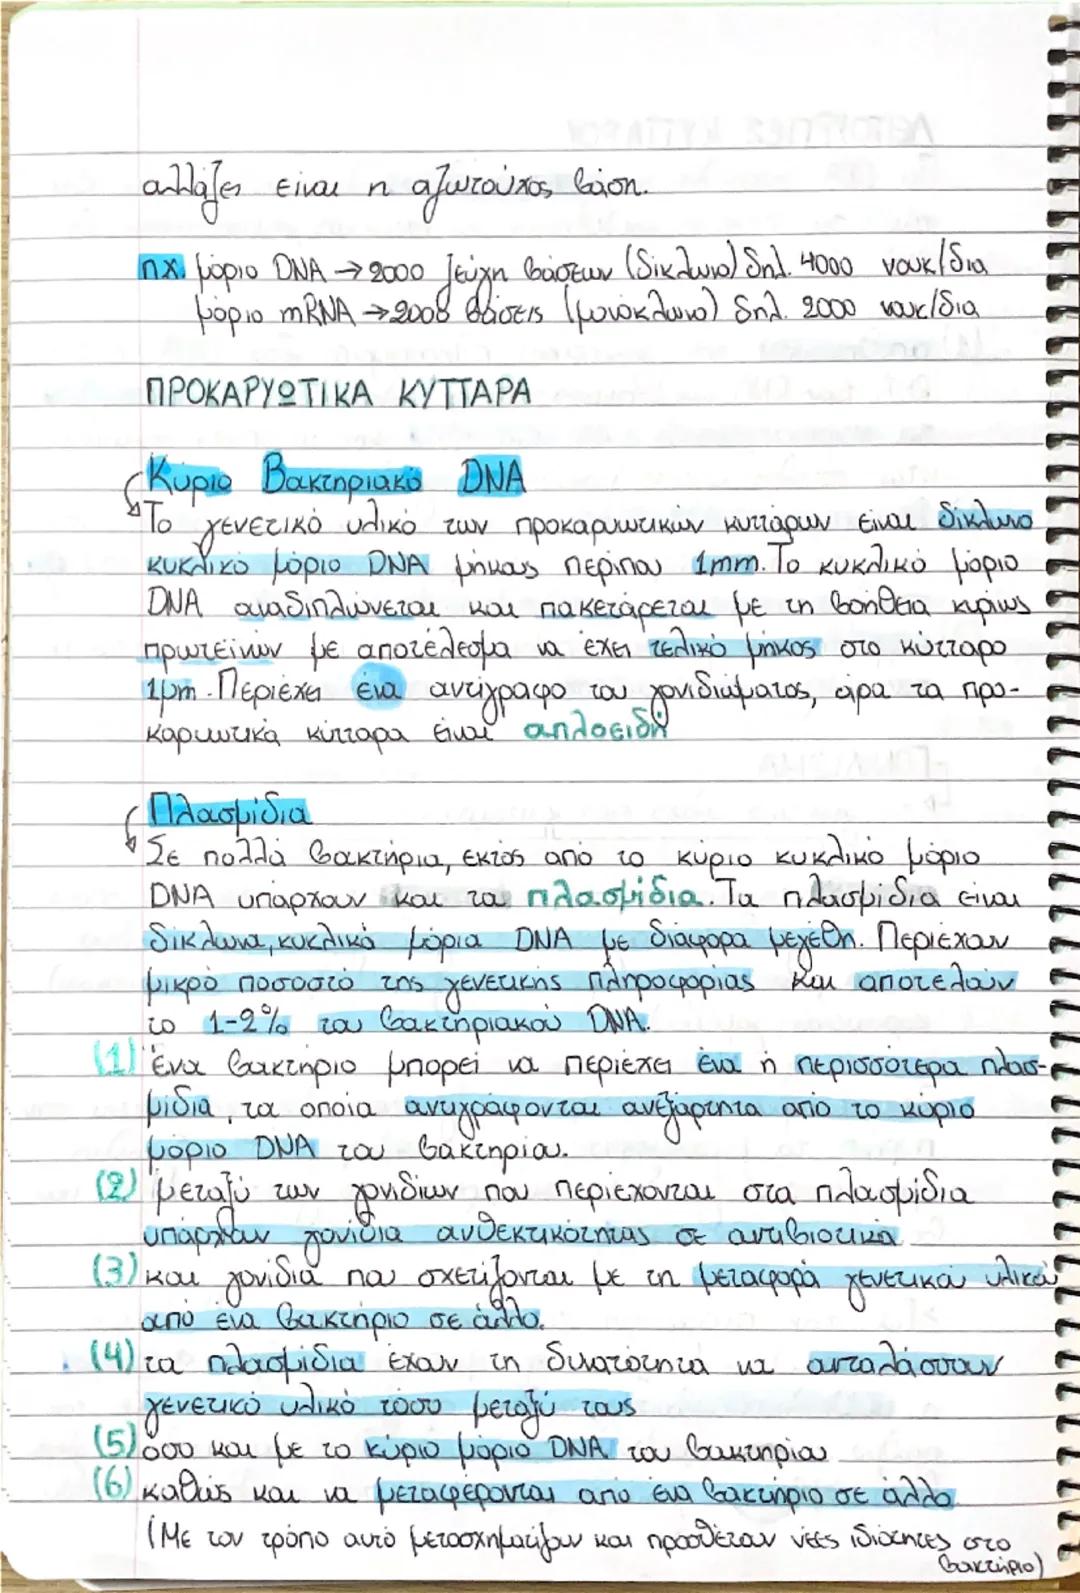 αλλάζει είναι η αζωτούχος βάση.
πχ. μόριο DNA → 2000 ζεύγη βάσεων (δίκλωνο) δηλ. 4000 νουκ/δια
μόριο mRNA → 2000 βάσεις (μονόκλωνο) δηλ. 2000 νουκ/δια
ΠΡΟΚΑΡΥΩΤΙΚΑ ΚΥΤΤΑΡΑ
Κύριο Βακτηριακό DNA
Το γενετικό υλικό των προκαρυωτικών κυττάρων είναι δίκλωνο
κυκλικό μόριο DNA μήκους περίπου 1mm. Το κυκλικό μόριο
DNA αναδιπλώνεται και πακετάρεται με τη βοήθεια κυρίως
πρωτεϊνών με αποτέλεσμα να έχει τελικό μήκος στο κύτταρο
1μm. Περιέχει ένα αντίγραφο του γονιδιώματος, άρα τα προ-
καρυωτικά κύτταρα είναι απλοειδή
Πλασμίδια
Σε πολλά βακτήρια, εκτός από το κύριο κυκλικό μόριο
DNA υπάρχουν και τα πλασμίδια. Τα πλασμίδια είναι
δίκλωνα, κυκλικά μόρια DNA με διάφορα μεγέθη. Περιέχουν
μικρό ποσοστό της γενετικής πληροφορίας και αποτελούν
το 1-2% του βακτηριακού DNA.
(1) Ένα βακτήριο μπορεί να περιέχει ένα ή περισσότερα πλασ-
μίδια, τα οποία αντιγράφονται ανεξάρτητα από το κύριο
μόριο DNA του βακτηρίου.
(2) μεταξύ των γονιδίων που περιέχονται στα πλασμίδια
υπάρχουν γονίδια ανθεκτικότητας σε αντιβιοτικά
(3) και γονίδια που σχετίζονται με τη μεταφορά γενετικού υλικού
από ένα βακτήριο σε άλλο.
(4) τα πλασμίδια έχουν τη δυνατότητα να ανταλάσσουν
γενετικό υλικό τόσο μεταξύ τους
(5) όσο και με το κύριο μόριο DNA του βακτηρίου
(6) καθώς και να μεταφέρονται από ένα βακτήριο σε άλλο
(Με τον τρόπο αυτό μετασχηματίζουν και προσθέτουν νέες ιδιότητες στο
βακτήριο)